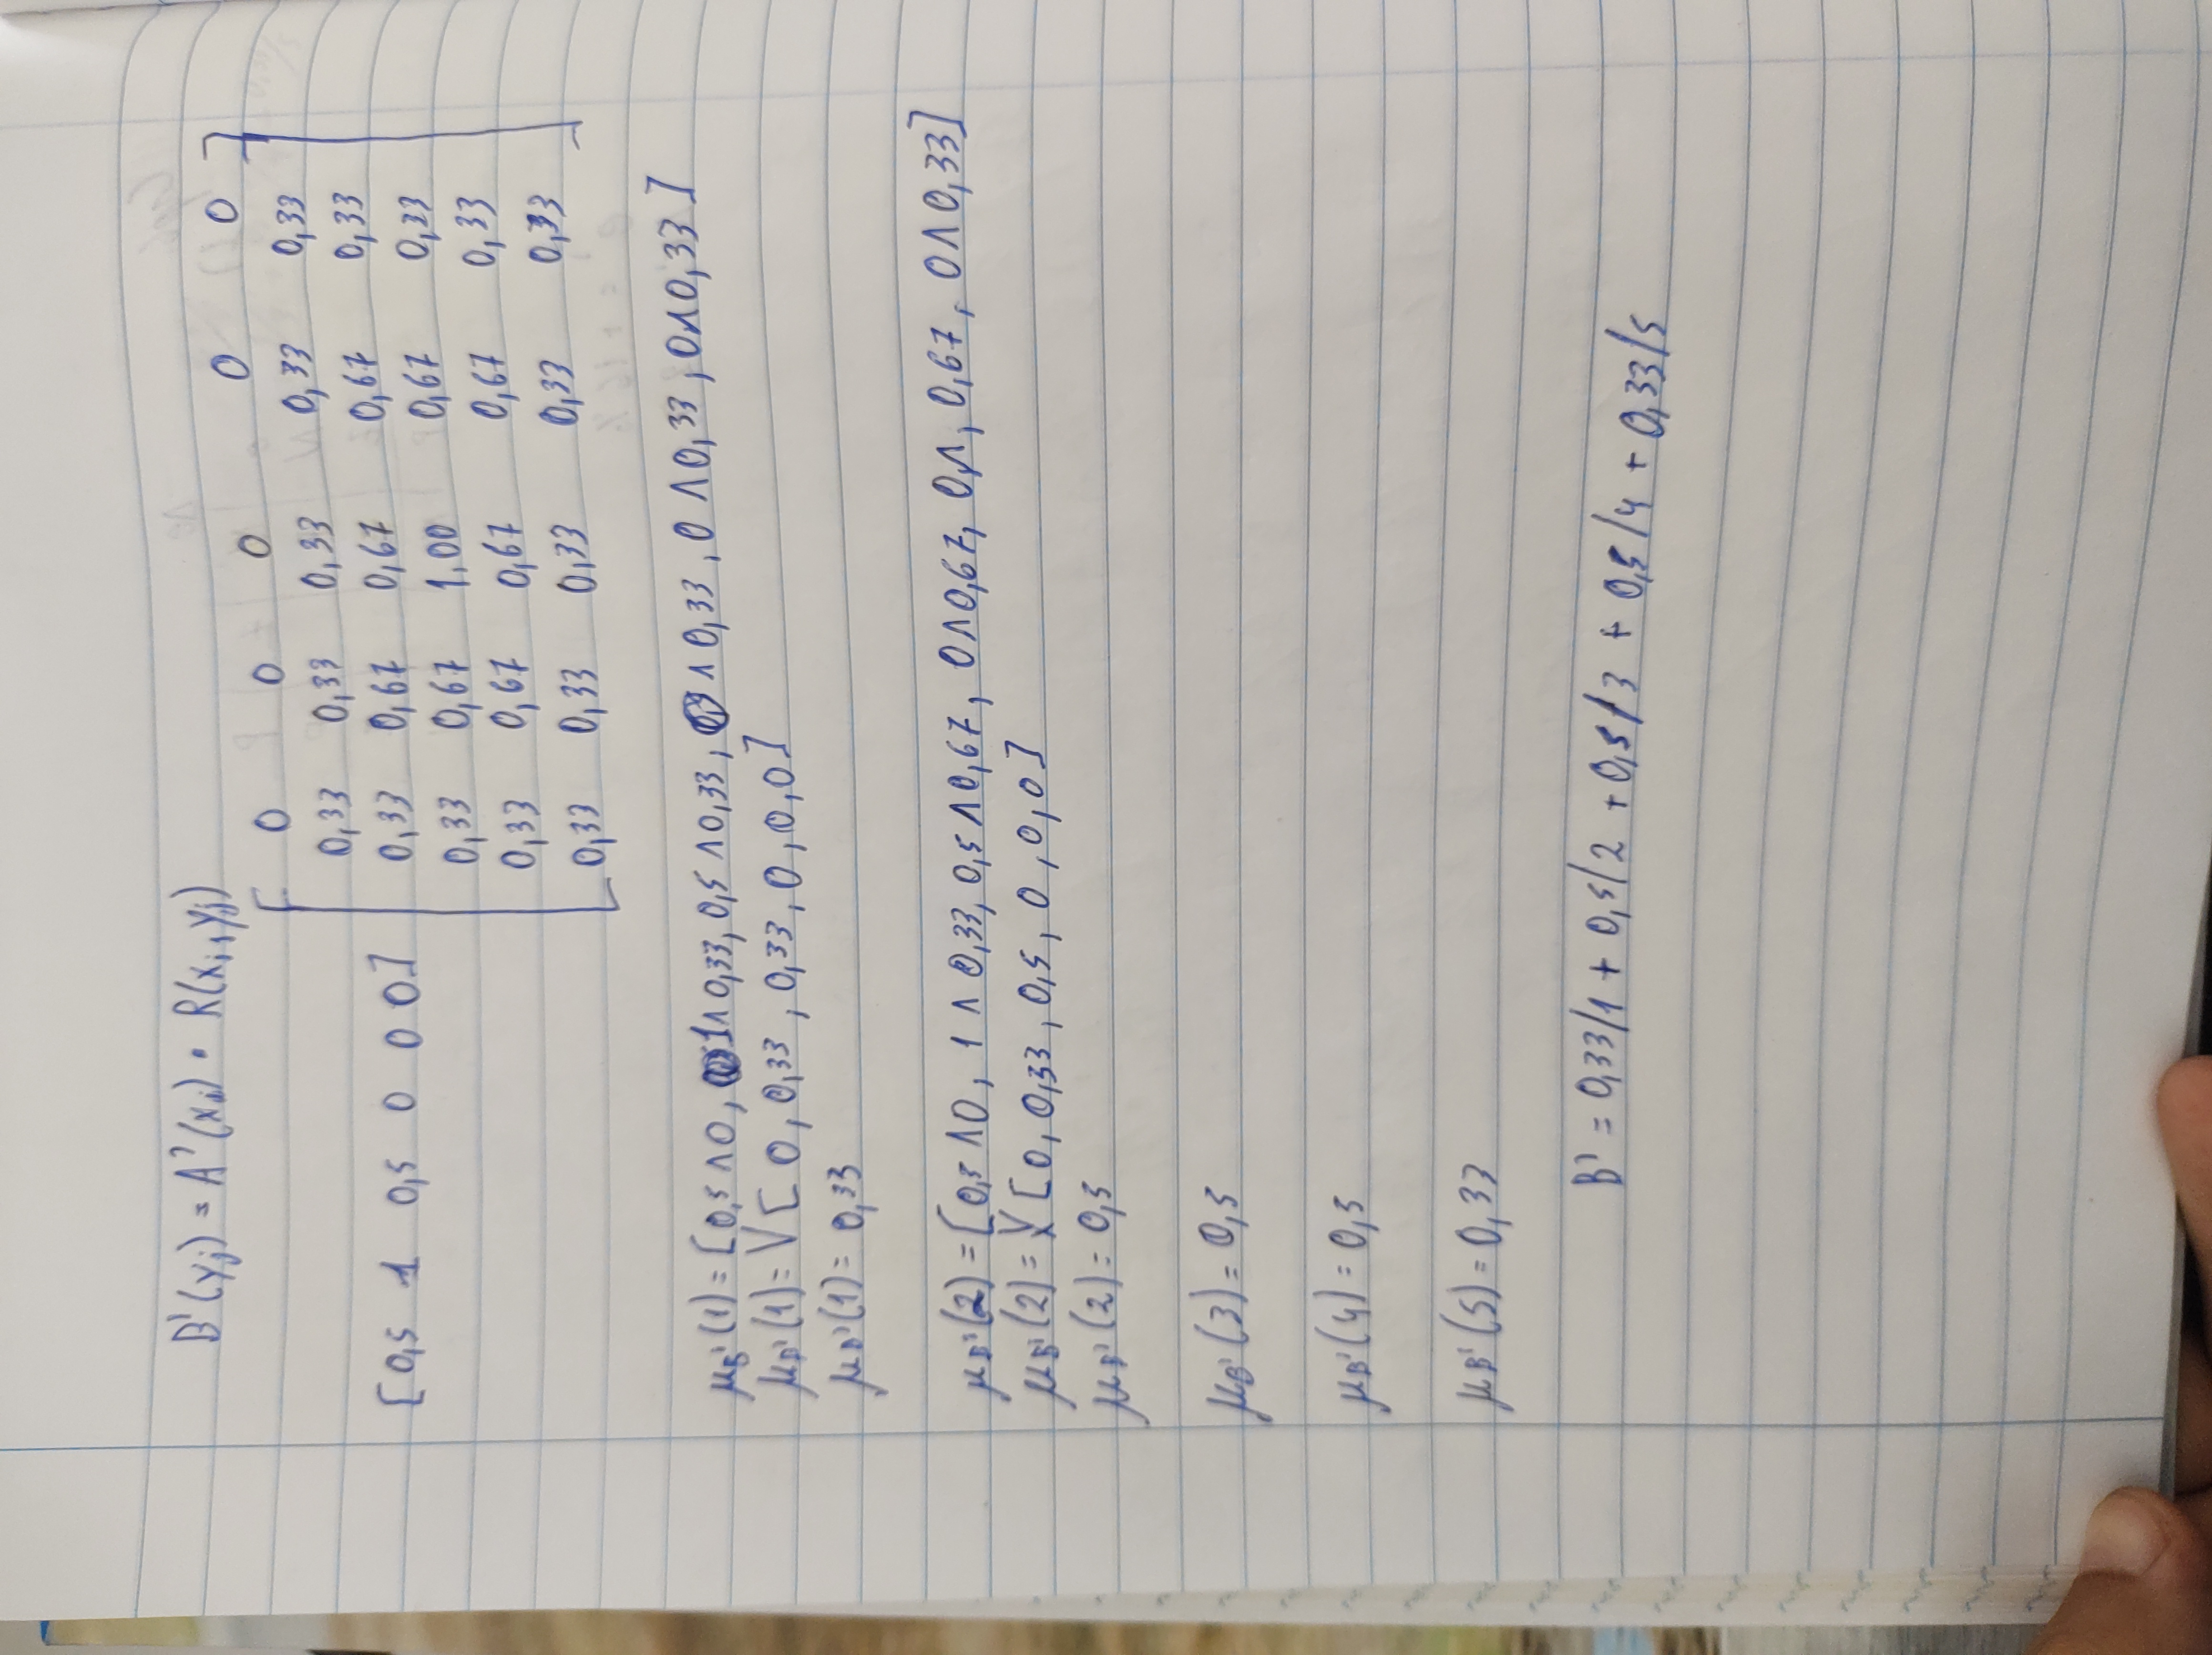 B'(yj) = A'(xi) • R(xi, yj)
0 0 0 0 0
0,33 0,33 0,33 0,33 0,33
0,33 0,67 0,67 0,67 0,33
[0,5 1 0,5 0 0 0]
0,33 0,67 1.00 0,67 0,33
0,33 0,67 0,67 0,67 0,33
0,33 0,33 0,33 0,33 0,33
μB'(1) = [0,5 ∧ 0, 1 ∧ 0,33, 0,5 ∧ 0,33, 0 ∧ 0,33, 0 ∧ 0,33, 0 ∧ 0,33]
μB'(1) = V [0, 0,33, 0,33, 0, 0, 0]
μB'(1) = 0,33
μB'(2) = [0,5 ∧ 0, 1 ∧ 0,33, 0,5 ∧ 0,67, 0 ∧ 0,67, 0 ∧, 0,67, 0 ∧ 0,33]
μB'(2) = V [0, 0,33, 0,5, 0, 0, 0]
μB'(2) = 0,5
μB'(3) = 0,5
μB'(4) = 0,5
μB'(5) = 0,33
B' = 0,33/1 + 0,5/2 + 0,5/3 + 0,5/4 + 0,33/5